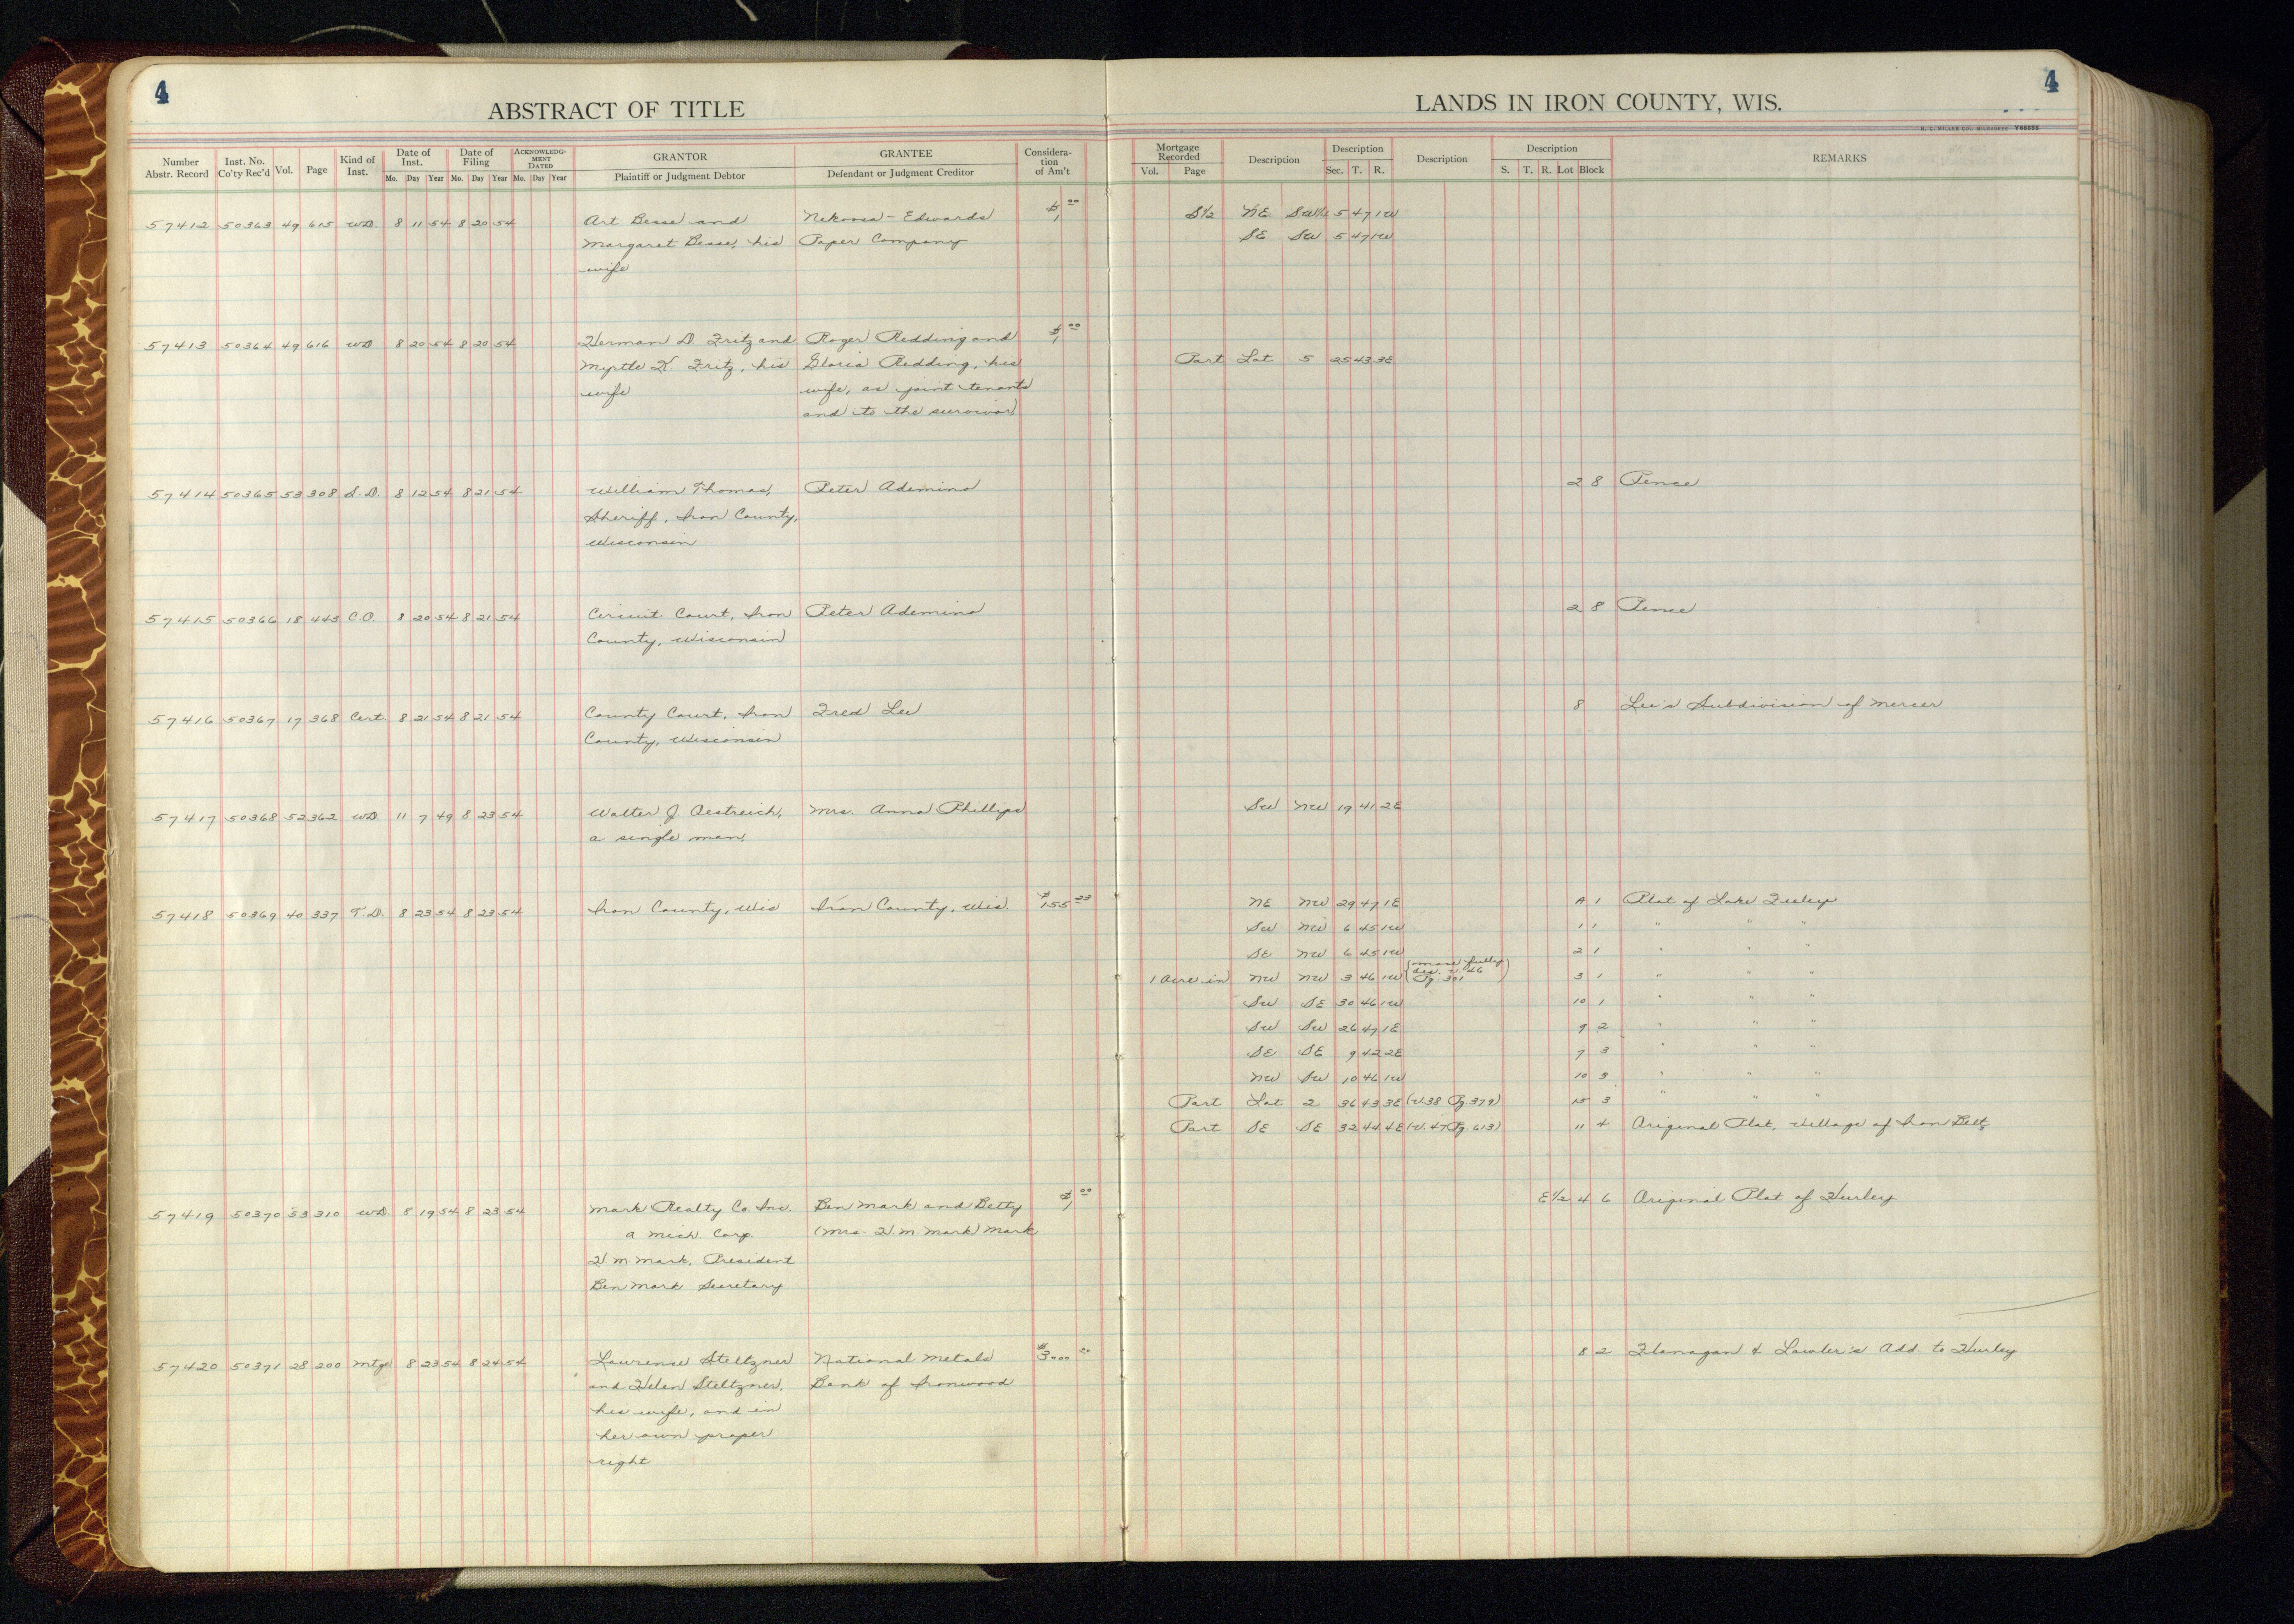 4
4
ABSTRACT OF TITLE
LANDS IN IRON COUNTY, WIS.
H. C. MILLER CO., MILWAUKEE
Number Abstr. Record
Inst. No. Co'ty Rec'd
Vol.
Page
Kind of Inst.
Date of Inst.
Mo. Day Year
Date of Filing
Mo. Day Year
ACKNOWLEDGMENT DATED
Mo. Day Year
GRANTOR
Plaintiff or Judgment Debtor
GRANTEE
Defendant or Judgment Creditor
Consideration of Am't
Mortgage Recorded
Vol. Page
Description
Description
Sec. T. R.
Description
Description
S. T. R. Lot Block
REMARKS
57412 50363 49 615 WD. 8 11 54 8 20 54 Art Besse and Nekoosa-Edwards $1.00 S½ NE SW¼ 5 47 1W
Margaret Besse, his Paper Company SE SW 5 47 1W
wife
57413 50364 49 616 WD 8 20 54 8 20 54 Herman D. Fritz and Roger Redding and $1.00
Myrtle K. Fritz, his Gloria Redding, his Part Lot 5 25 43 3E
wife wife, as joint tenants
and to the survivor
57414 50365 53 308 S.D. 8 12 54 8 21 54 William Thomas, Peter Ademino 2 8 Pence
Sheriff, Iron County,
Wisconsin
57415 50366 18 443 C.O. 8 20 54 8 21 54 Circuit Court, Iron Peter Ademino 2 8 Pence
County, Wisconsin
57416 50367 17 368 Cert 8 21 54 8 21 54 County Court, Iron Fred Lee 8 Lee's Subdivision of Mercer
County, Wisconsin
57417 50368 52 362 WD. 11 7 49 8 23 54 Walter J. Oestreich, Mrs. Anna Phillips SW NW 19 41 2E
a single man.
57418 50369 40 337 T.D. 8 23 54 8 23 54 Iron County, Wis Iron County, Wis. $155.23 NE NW 29 47 1E A 1 Plat of Lake
SW NW 6 45 1W 1 1 " " "
SE NW 6 45 1W 2 1 " " "
1 Acre in NW NW 3 46 1W (more fully des. V. 46 Pg. 301) 3 1 " " "
SW SE 30 46 1W 10 1 " " "
SW SW 26 47 1E 9 2 " " "
SE SE 9 42 2E 7 3 " " "
NW SW 10 46 1W 10 3 " " "
Part Lot 2 36 43 3E (V.38 Pg.379) 15 3 " " "
Part SE SE 32 44 4E (V.47 Pg.613) 11 4 Original Plat, Village of Iron Belt
57419 50370 53 310 WD. 8 19 54 8 23 54 Mark Realty Co. Inc. Ben Mark and Betty $1.00 E½ 4 6 Original Plat of Hurley
a Mich. Corp. (Mrs. H. M. Mark) Mark
H M Mark, President
Ben Mark Secretary
57420 50371 28 200 Mtge 8 23 54 8 24 54 Lawrence Steltzner National Metals $3000.00 8 2 Flanagan & Lawler's Add. to Hurley
and Helen Steltzner, Bank of Ironwood
his wife, and in
her own proper
right